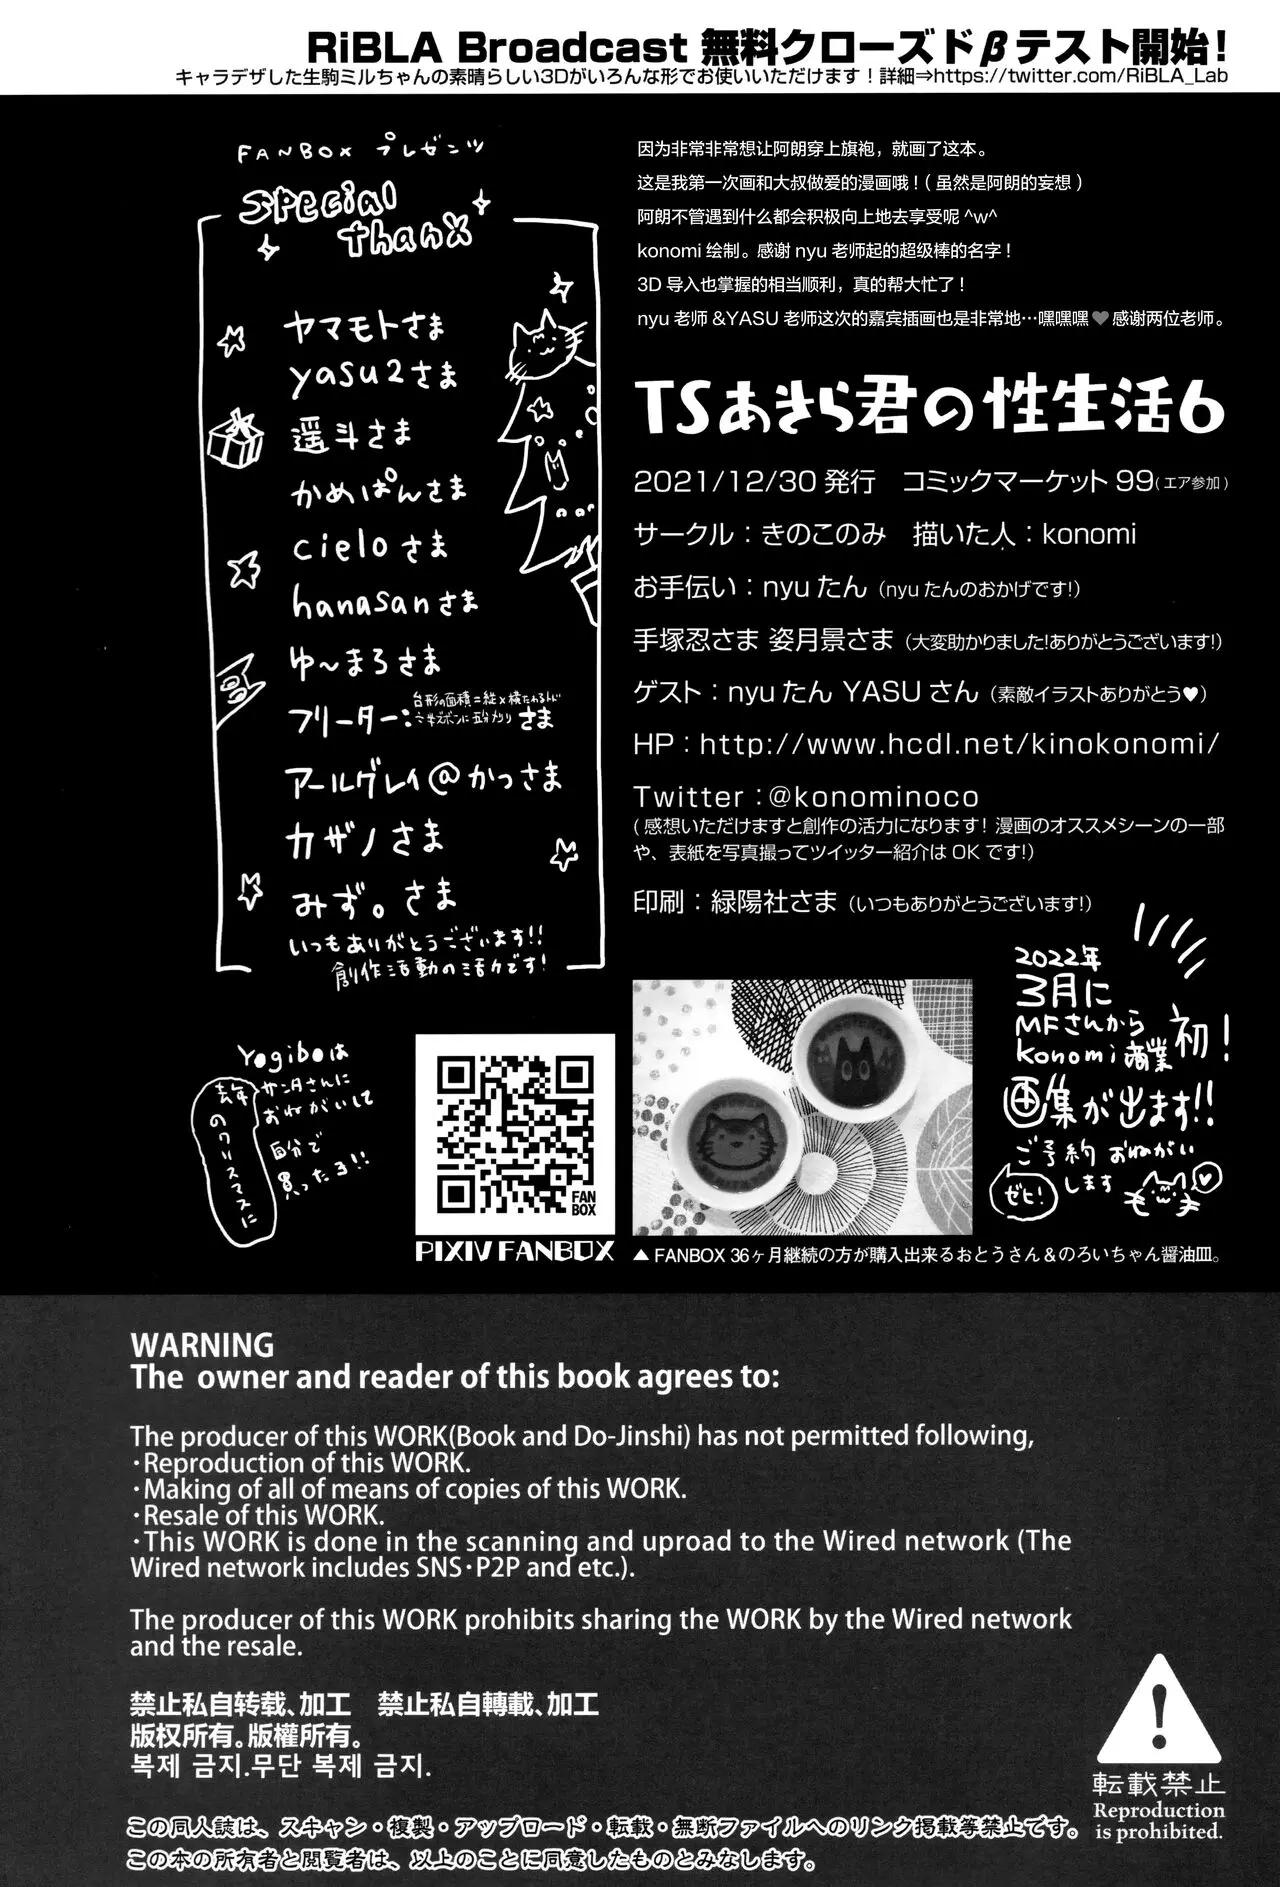 RiBLA Broadcast 無料クローズドβテスト開始！
キャラデザした生駒ミルちゃんの素晴らしい3Dがいろんな形でお使いいただけます！詳細⇒https://twitter.com/RiBLA_Lab
FANBOX プレゼンツ
Special
Thanx
ヤマモトさま
yasu2さま
遥斗さま
かめぱんさま
cieloさま
hanasanさま
ゆ～まろさま
フリーター：台形の面積＝縦×横たわるトド
さま
アールグレイ@かっさま
カザノさま
みず。さま
いつもありがとうございます!!
創作活動の活力です！
因为非常非常想让阿朗穿上旗袍，就画了这本。
这是我第一次画和大叔做爱的漫画哦！（虽然是阿朗的妄想）
阿朗不管遇到什么都会积极向上地去享受呢 ^w^
konomi 绘制。感谢 nyu 老师起的超级棒的名字！
3D 导入也掌握的相当顺利，真的帮大忙了！
nyu 老师 &YASU 老师这次的嘉宾插画也是非常地…嘿嘿嘿♥感谢两位老师。
TSあきら君の性生活6
2021/12/30 発行　コミックマーケット 99（エア参加）
サークル：きのこのみ　描いた人：konomi
お手伝い：nyuたん（nyuたんのおかげです!）
手塚忍さま 姿月景さま（大変助かりました!ありがとうございます!）
ゲスト：nyuたん YASUさん（素敵イラストありがとう♥）
HP：http://www.hcdl.net/kinokonomi/
Twitter：@konominoco
（感想いただけますと創作の活力になります！漫画のオススメシーンの一部
や、表紙を写真撮ってツイッター紹介は OK です!）
印刷：緑陽社さま（いつもありがとうございます!）
2022年
3月に
MFさんから
konomi商業初！
画集が出ます!!
ご予約おねがい
します
ゼヒ!
Yogiboは
去年のクリスマスに
サンタさんに
おねがいして
自分で
買ったよ!!
FAN
BOX
PIXIV FANBOX
▲ FANBOX 36ヶ月継続の方が購入出来るおとうさん＆のろいちゃん醤油皿。
WARNING
The owner and reader of this book agrees to:
The producer of this WORK(Book and Do-Jinshi) has not permitted following,
・Reproduction of this WORK.
・Making of all of means of copies of this WORK.
・Resale of this WORK.
・This WORK is done in the scanning and uproad to the Wired network (The
Wired network includes SNS・P2P and etc.).
The producer of this WORK prohibits sharing the WORK by the Wired network
and the resale.
禁止私自转载、加工　禁止私自轉載、加工
版权所有。版權所有。
복제 금지.무단 복제 금지.
この同人誌は、スキャン・複製・アップロード・転載・無断ファイルへのリンク掲載等禁止です。
この本の所有者と閲覧者は、以上のことに同意したものとみなします。
転載禁止
Reproduction
is prohibited.